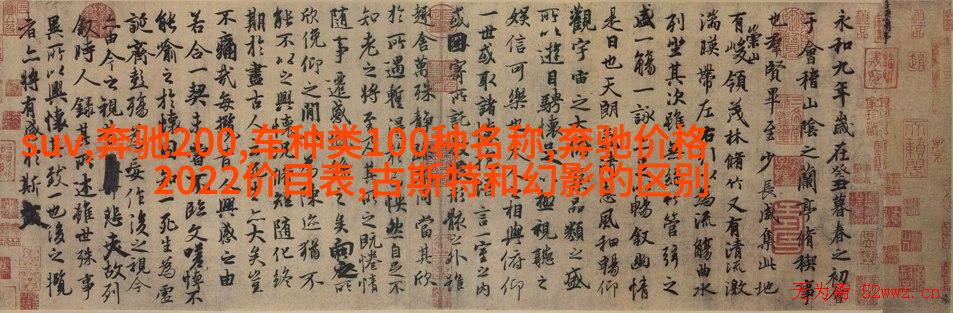 suv,奔驰200,车种类100种名称,奔驰价格
2022价目表,古斯特和幻影的区别
永和九年歲在癸丑暮春之初會
于會稽山陰之蘭亭脩稧事
也群賢畢至少長咸集此地
有崇山峻領茂林脩竹又有清流激
湍暎帶左右引以為流觴曲水
列坐其次雖無絲竹管弦之
盛一觴一詠亦足以暢敘幽情
是日也天朗氣清惠風和暢仰
觀宇宙之大俯察品類之盛
所以遊目騁懷足以極視聽之
娛信可樂也夫人之相與俯仰
一世或取諸懷抱悟言一室之內
或因寄所託放浪形骸之外雖
趣舍萬殊靜躁不同當其欣
於所遇暫得於己怏然自足不
知老之將至及其所之既惓情
隨事遷感慨係之矣向之所
欣俛仰之間以為陳迹猶不
能不以之興懷況脩短隨化終
期於盡古人云死生亦大矣豈
不痛哉每攬昔人興感之由
若合一契未嘗不臨文嗟悼不
能喻之於懷固知一死生為虛
誕齊彭殤為妄作後之視今
亦由今之視昔悲夫故列
敘時人錄其所述雖世殊事
異所以興懷其致一也後之攬
者亦將有感於斯文
无为斋 52wwz.cn